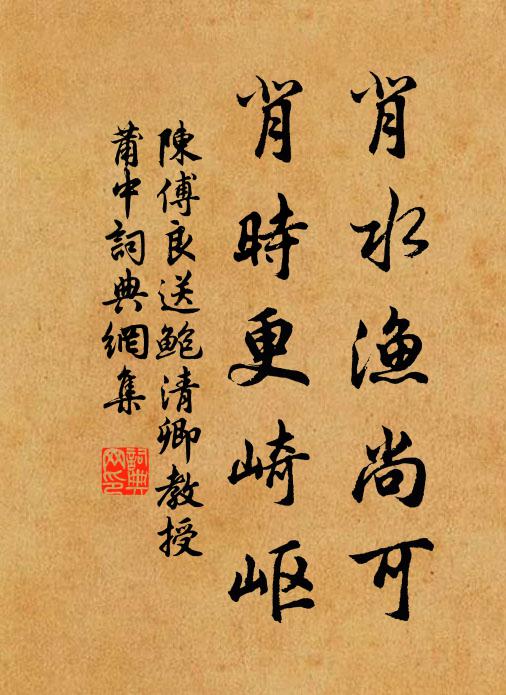 肖水漁尚可
肖時更崎岖
陳傅良送鮑清卿教授
莆中詞典網集
詞典網印